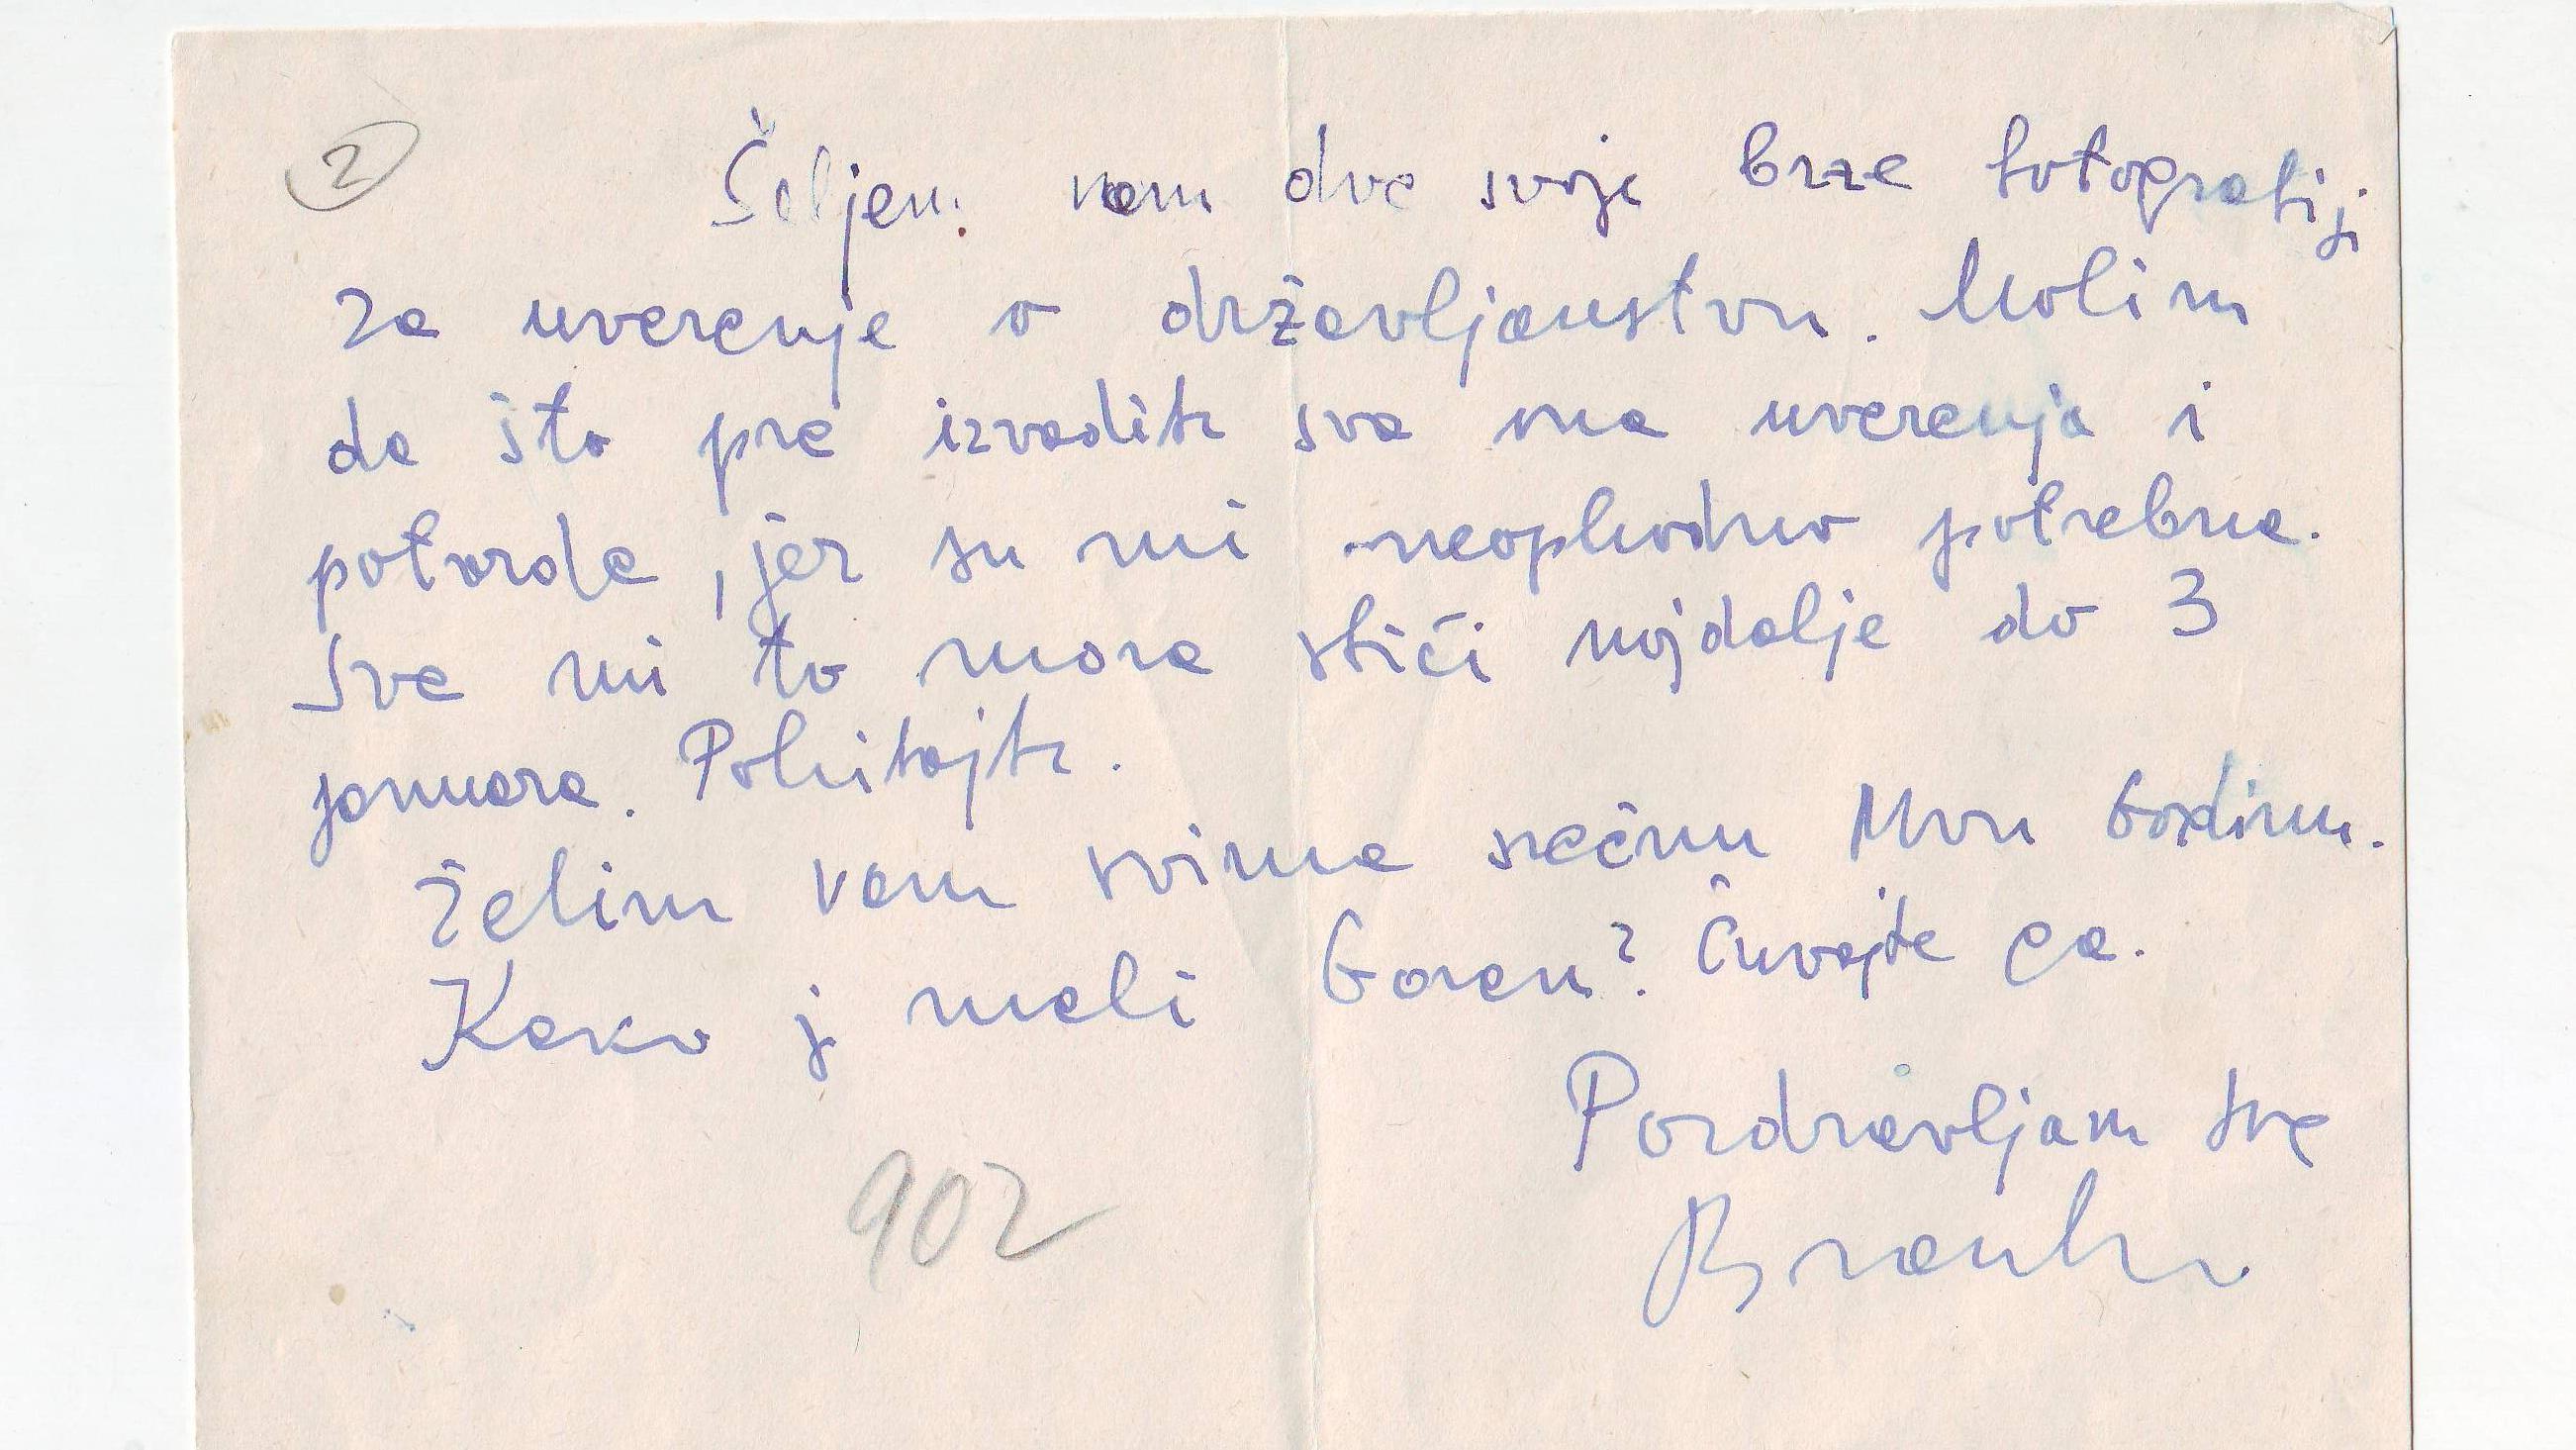 2
Šaljem vam dve svoje brze fotografije
za uverenje o državljanstvu. Molim
da što pre izvadite sva ona uverenja i
potvrde, jer su mi neophodno potrebne.
Sve mi to mora stići najdalje do 3
januara. Pohitajte.
Želim vam svima srećnu Novu Godinu.
Kako je mali Goran? Čuvajte ga.
Pozdravljam sve
Branko
902